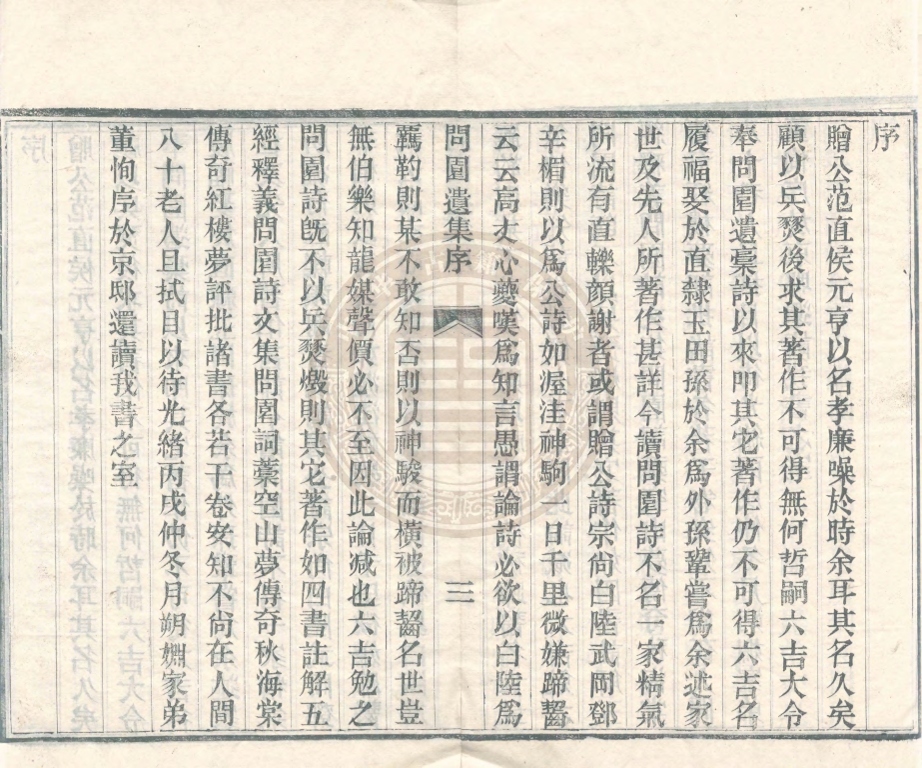 序
贈公范直侯元亨以名孝廉噪於時余耳其名久矣
顧以兵燹後求其著作不可得無何哲嗣六吉大令
奉問園遺稾詩以來叩其它著作仍不可得六吉名
履福娶於直隸玉田孫於余爲外孫鞏嘗爲余述家
世及先人所著作甚詳今讀問園詩不名一家精氣
所流有直轢顔謝者或謂贈公詩宗尙白陸武岡鄧
辛楣則以爲公詩如渥洼神駒一日千里微嫌蹄齧
云云高才心夔嘆爲知言愚謂論詩必欲以白陸爲
問園遺集序 三
羈靮則某不敢知否則以神駿而橫被蹄齧名世豈
無伯樂知龍媒聲價必不至因此論減也六吉勉之
問園詩旣不以兵燹燬則其它著作如四書註解五
經釋義問園詩文集問園詞藁空山夢傳奇秋海棠
傳奇紅樓夢評批諸書各若干卷安知不尙在人間
八十老人且拭目以待光緒丙戌仲冬月朔婣家弟
董恂序於京邸還讀我書之室